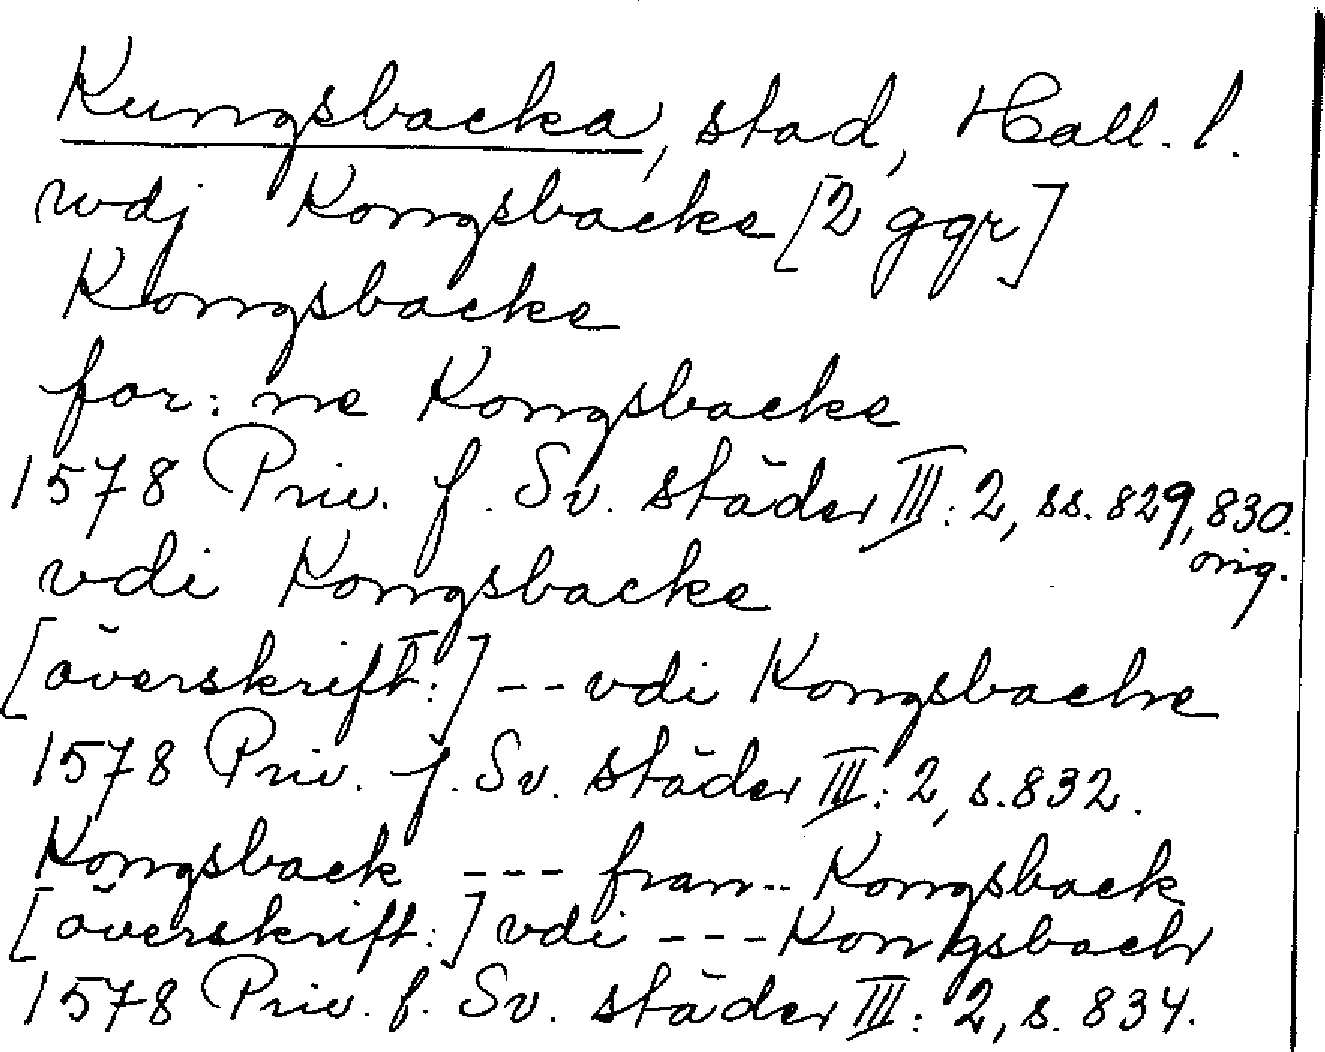 Kungsbacka, stad, Hall. l.
wdj Kongsbacke [2 ggr]
Kongsbacke
for: ne Kongsbacke
1578 Priv. f. Sv. städer III: 2, ss. 829, 830.
orig.
vdi Kongsbacke
[överskrift:] -- vdi Kongsbacke
1578 Priv. f. Sv. städer III: 2, s. 832.
Kongsback --- fran -- Kongsback
[överskrift:] vdi --- Kongsback
1578 Priv. f. Sv. städer III: 2, s. 834.